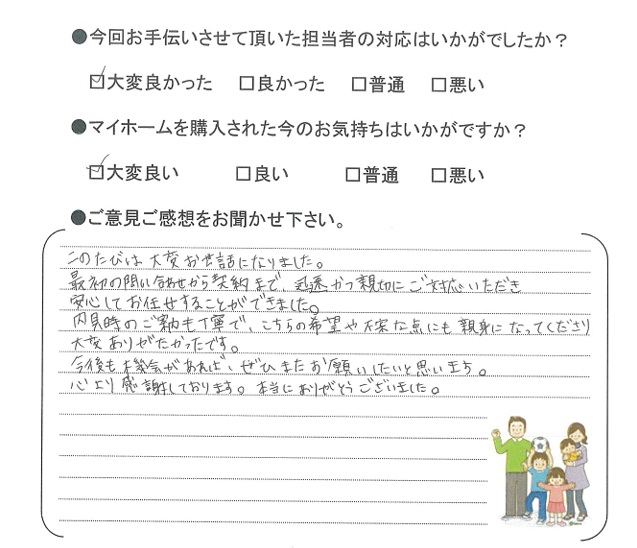 ●今回お手伝いさせて頂いた担当者の対応はいかがでしたか？
☑大変良かった　□良かった　□普通　□悪い
●マイホームを購入された今のお気持ちはいかがですか？
☑大変良い　□良い　□普通　□悪い
●ご意見ご感想をお聞かせ下さい。
このたびは大変お世話になりました。
最初の問い合わせから契約まで、迅速かつ親切にご対応いただき
安心してお任せすることができました。
内見時のご案内も丁寧で、こちらの希望や不安な点にも親身になってくださり
大変ありがたかったです。
今後も機会があれば、ぜひまたお願いしたいと思います。
心より感謝しております。本当にありがとうございました。